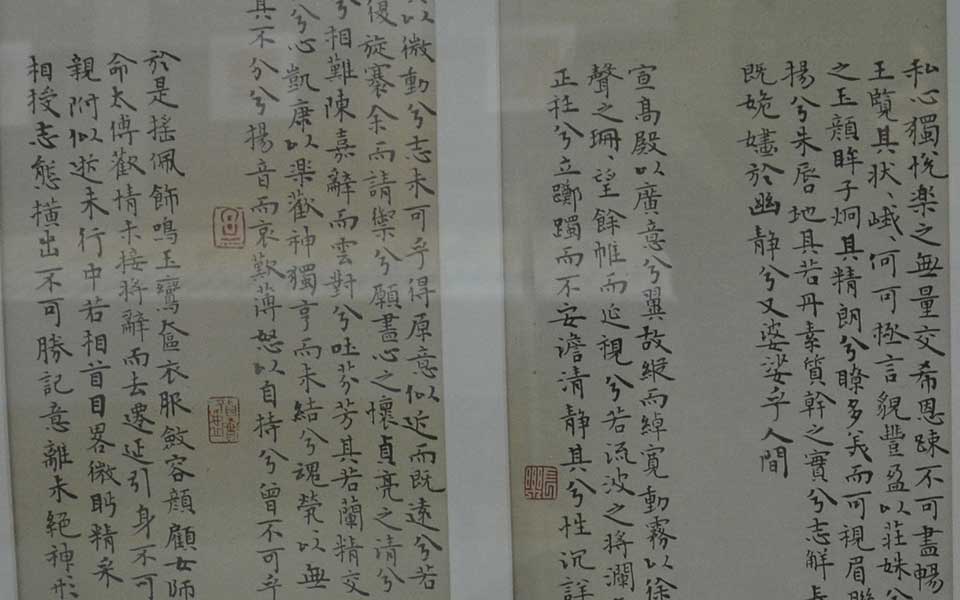 私心獨悅樂之無量交希恩疎不可盡暢
王覽其狀、峨、何可極言貌豐盈以莊姝兮
之玉顏眸子炯其精朗兮瞭多美而可視眉聯
揚兮朱唇地其若丹素質幹之實兮志解
既姽嫿於幽靜兮又婆娑乎人間
宣高殿以廣意兮翼故縱而綽寬動霧以徐
聲之珊、望餘帷而延視兮若流波之將瀾
正衽兮立躑躅而不安澹清靜其兮性沉詳
以微動兮志未可乎得原意似近而既遠兮若
復旋褰余而請禦兮願盡心之懷貞亮之清兮
兮相難陳嘉辭而雲對兮吐芬芳其若蘭精交
兮心凱康以樂歡神獨亨而未結兮魂煢以無
其不分兮揚音而哀歎薄怒以自持兮曾不可乎
於是搖佩飾鳴玉鸞奩衣服斂容顏顧女師
命太傅歡情未接將辭而去遷延引身不可
親附似逝未行中若相首目畧微眄精采
相授志態橫出不可勝記意離未絕神形